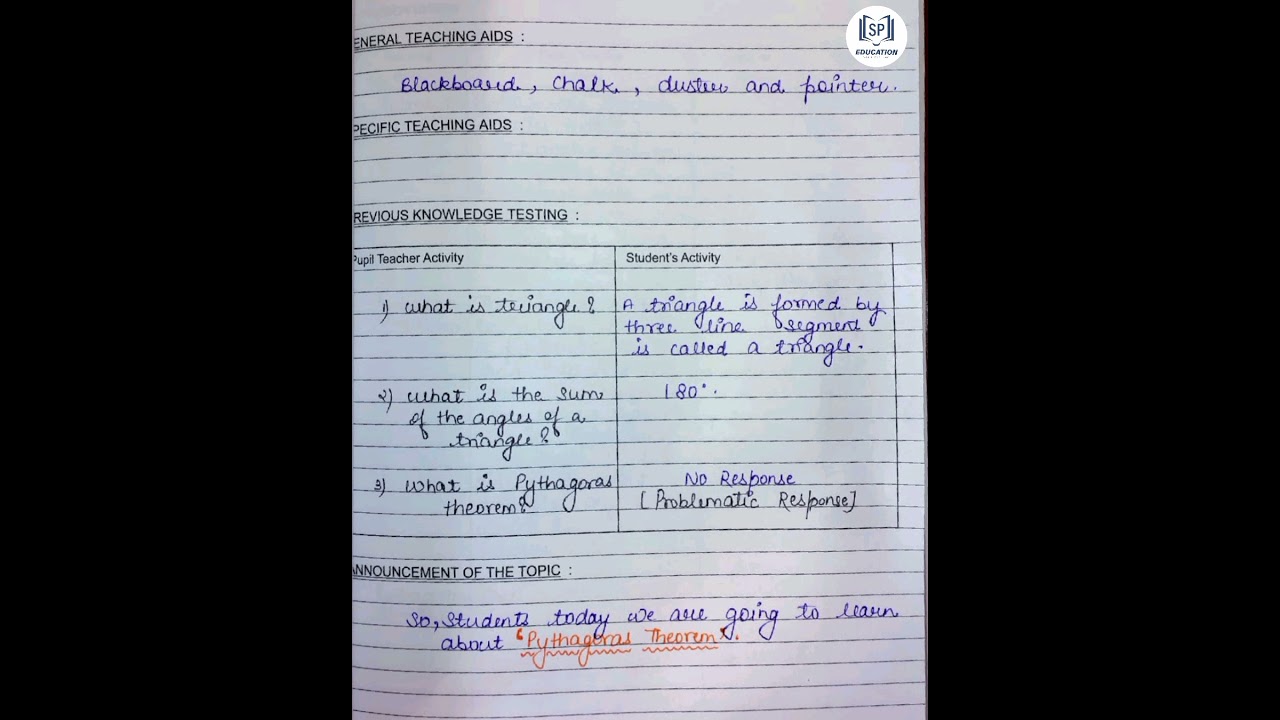 SP
EDUCATION
ENERAL TEACHING AIDS :
Blackboard, Chalk, duster and pointer.
PECIFIC TEACHING AIDS :
REVIOUS KNOWLEDGE TESTING :
Pupil Teacher Activity
Student's Activity
1) what is triangle?
A triangle is formed by
three line segment
is called a triangle.
2) what is the sum
of the angles of a
triangle?
180°.
3) what is Pythagoras
theorem?
No Response
[Problematic Response]
ANNOUNCEMENT OF THE TOPIC :
So, Students today we are going to learn
about "Pythagoras Theorem".